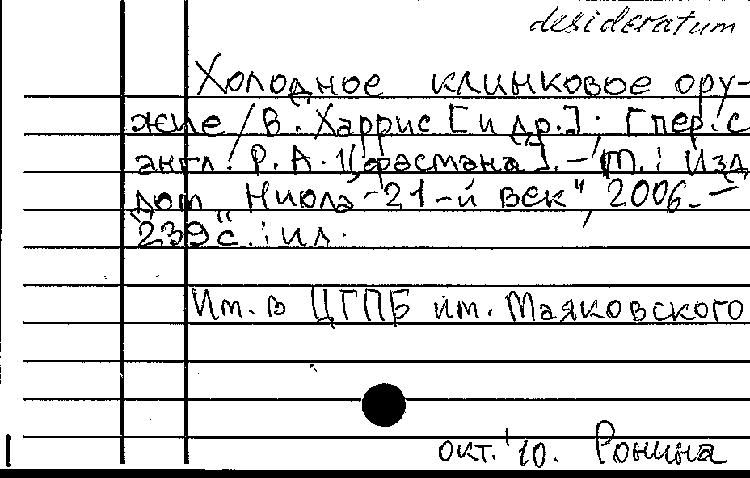 desideratum
Холодное клинковое ору-
жие / В. Харрис [и др.] ; [пер. с
англ. Р. А. Цфасмана]. – М. : Изд.
дом „Ниола - 21-й век", 2006. –
239 с. : ил.
Им. в ЦГПБ им. Маяковского
окт. '10. Ронина